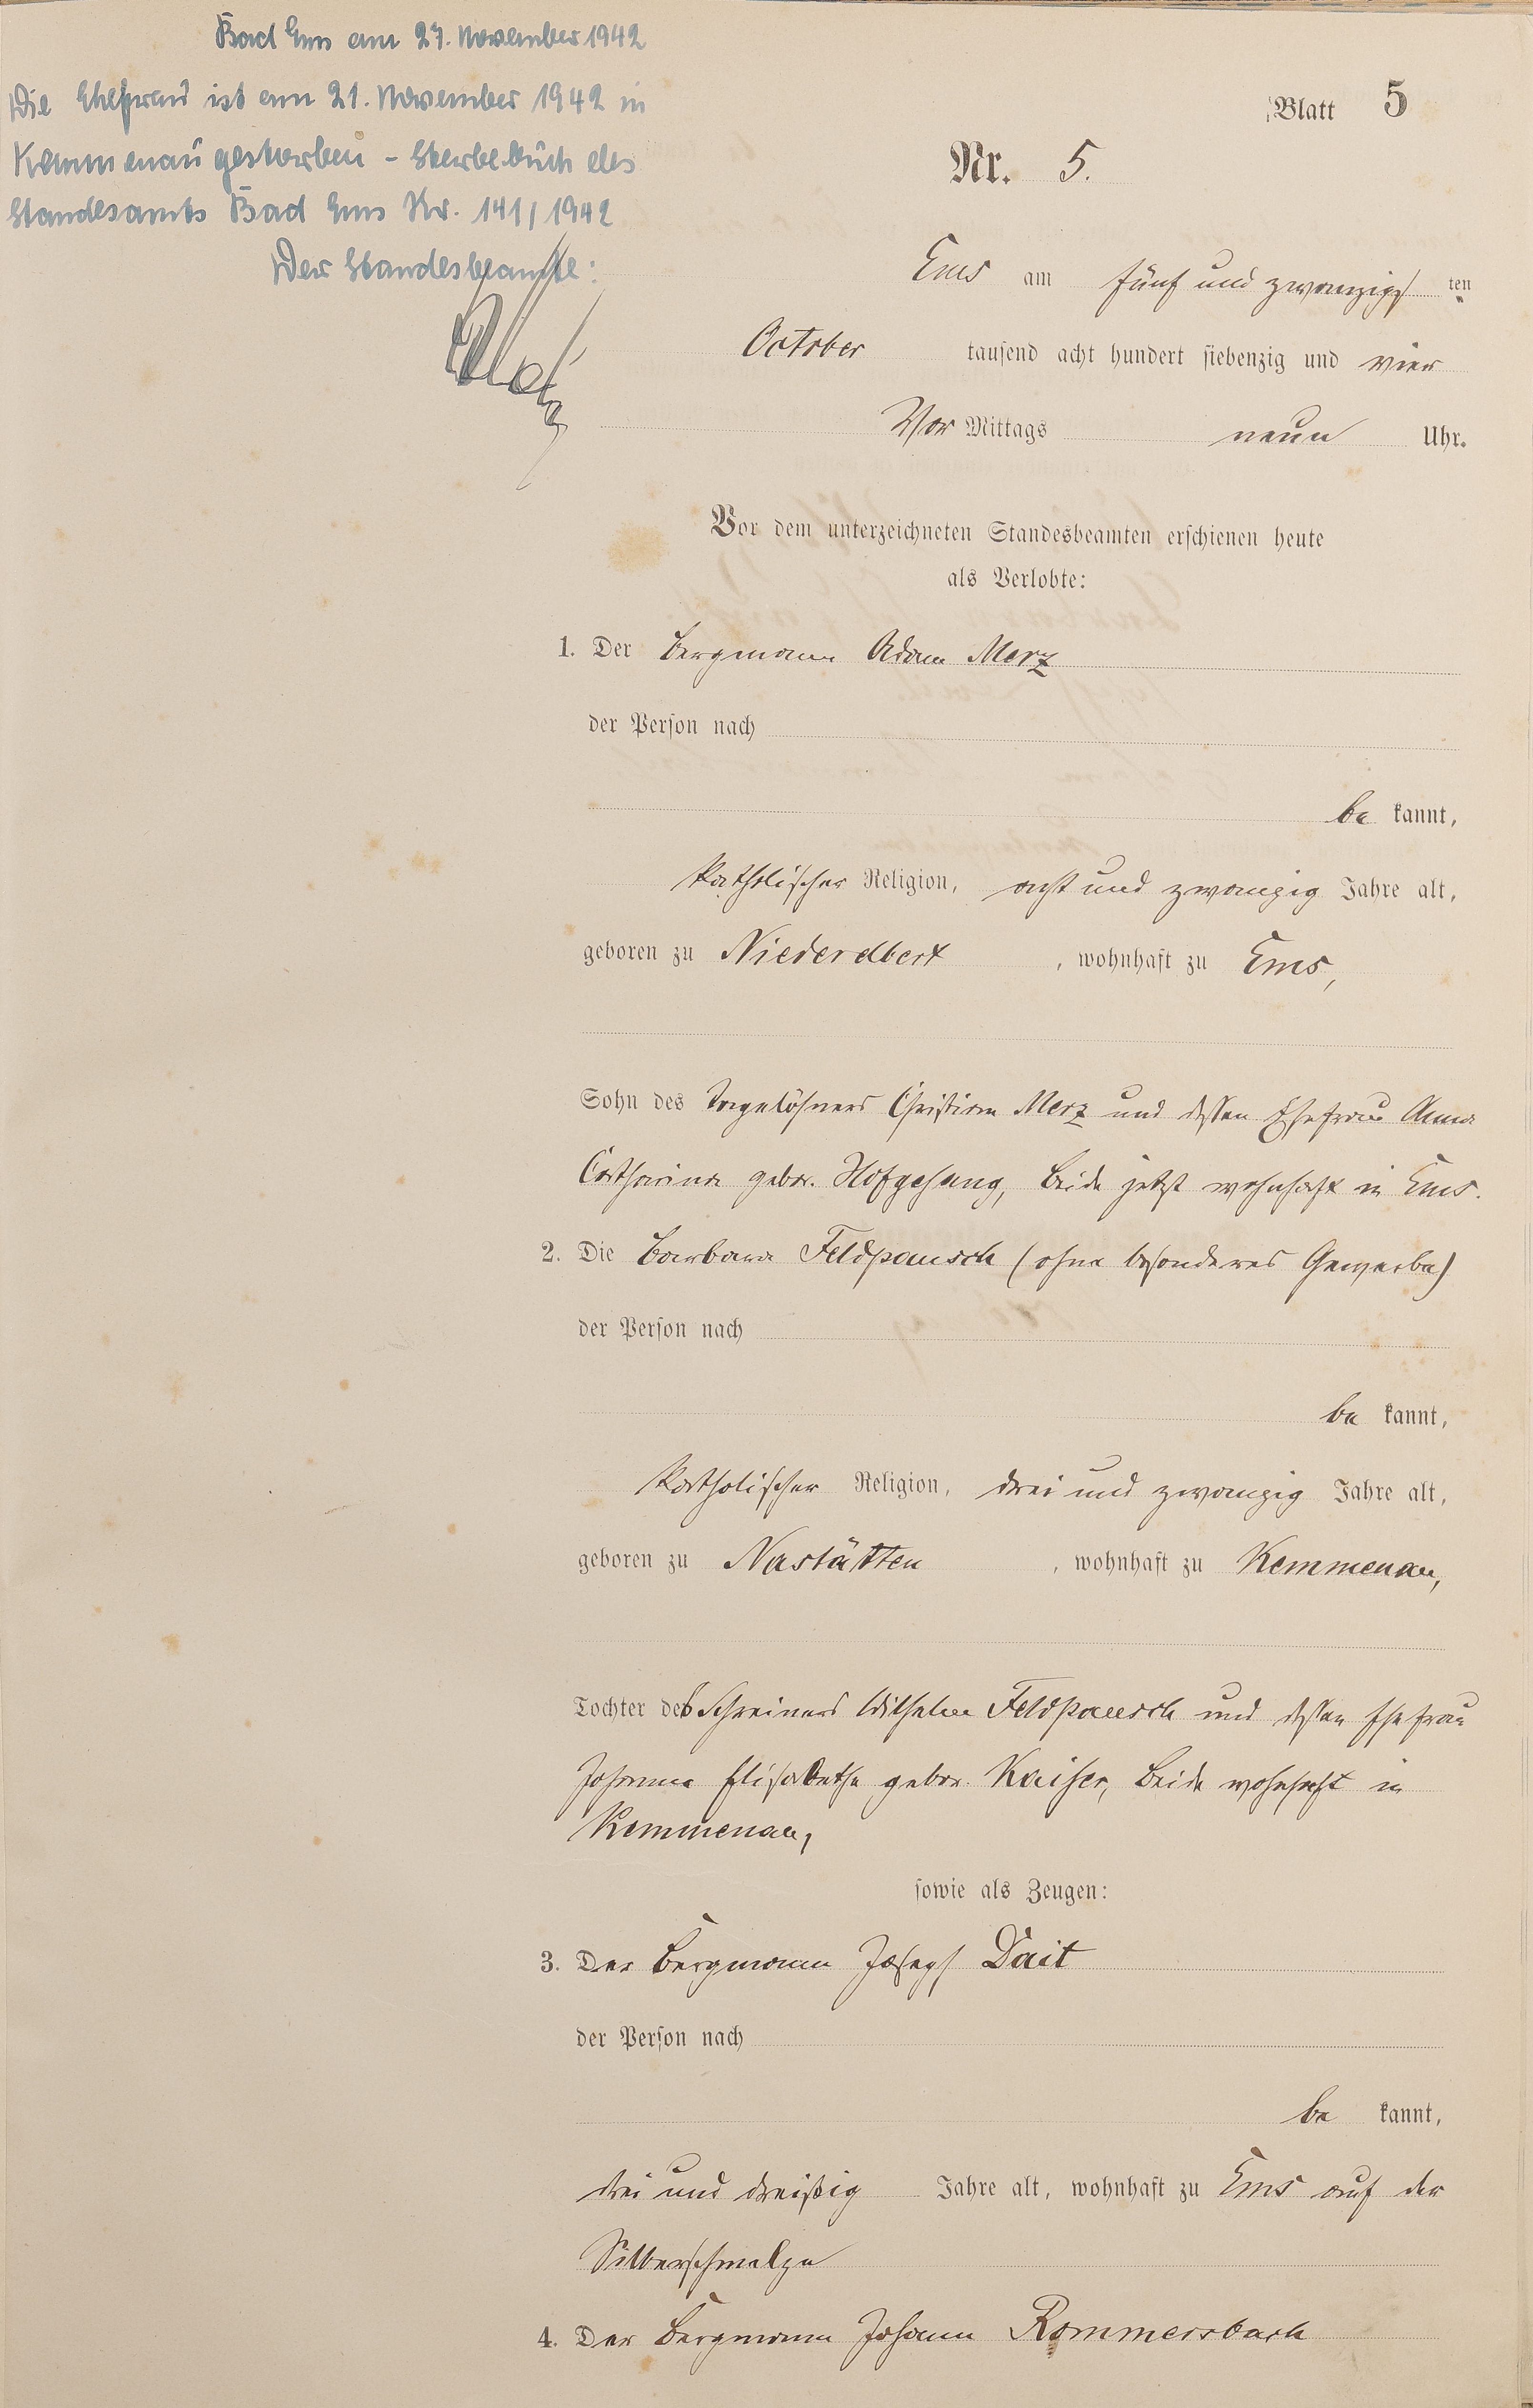 Bad Ems am 27. November 1942
Die Ehefrau ist am 21. November 1942 in
Kemmenau gestorben – Sterbebuch des
Standesamts Bad Ems Nr. 141/1942
Der Standesbeamte:
Blatt 5
Nr. 5.
Ems am fünf und zwanzigs ten
October tausend acht hundert siebenzig und vier
Vor Mittags neun Uhr.
Vor dem unterzeichneten Standesbeamten erschienen heute
als Verlobte:
1. Der Bergmann Adam Merz
der Person nach
be kannt,
katholischer Religion, acht und zwanzig Jahre alt,
geboren zu Niederelbert, wohnhaft zu Ems,
Sohn des Tagelöhners Christian Merz und dessen Ehefrau Anna
Catharina gebor. Hofgesang, beide jetzt wohnhaft in Ems.
2. Die Barbara Feldpausch (ohne besonderes Gewerbe)
der Person nach
be kannt,
katholischer Religion, drei und zwanzig Jahre alt,
geboren zu Nastätten, wohnhaft zu Kemmenau,
Tochter des Schreiners Wilhelm Feldpausch und dessen Ehefrau
Johanna Elisabetha gebor. Kaiser, beide wohnhaft in
Kemmenau,
sowie als Zeugen:
3. Der Bergmann Joseph Dait
der Person nach
be kannt,
drei und dreißig Jahre alt, wohnhaft zu Ems auf der
Silberschmelze
4. Der Bergmann Johann Rommersbach